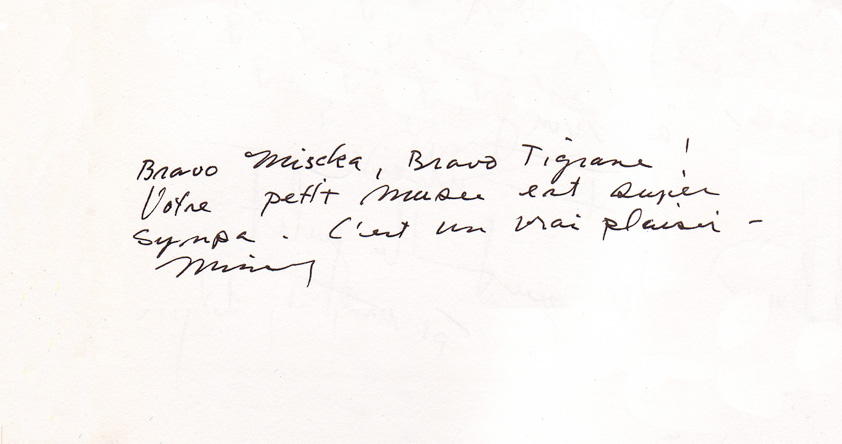 Bravo Mischa, Bravo Tigrane !
Votre petit musée est super
sympa. C'est un vrai plaisir -